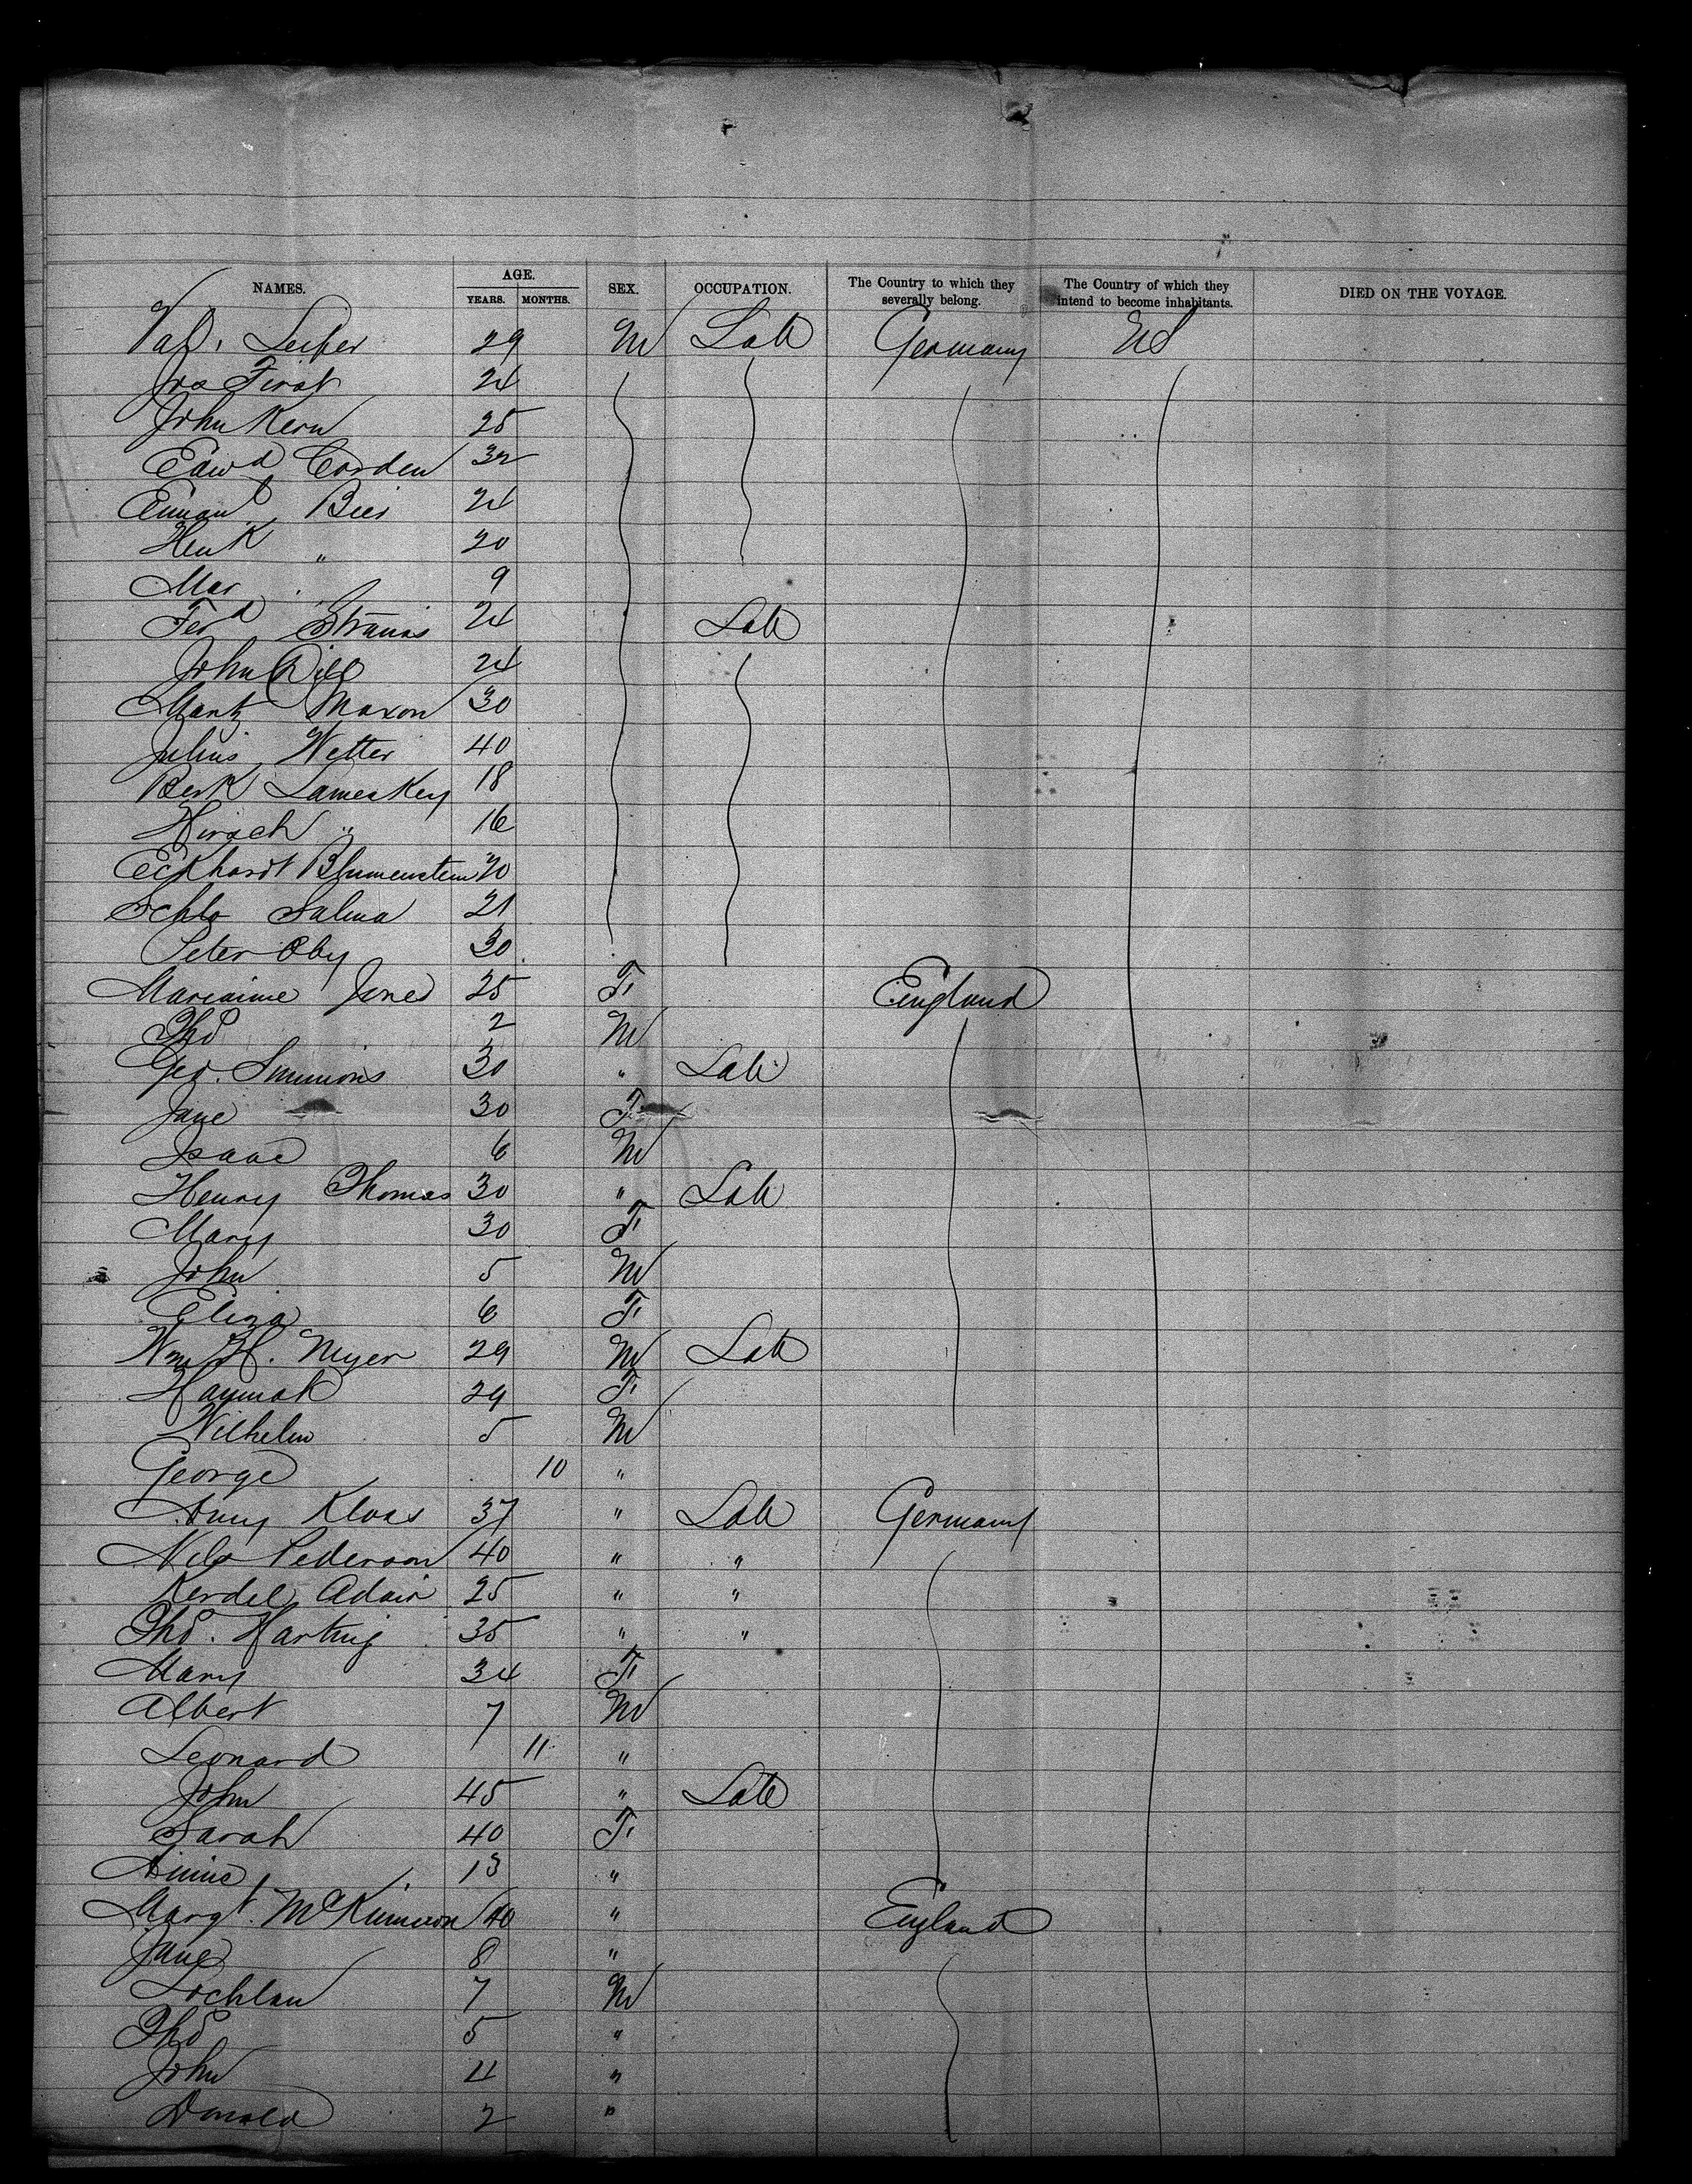 NAMES. AGE. YEARS. MONTHS. SEX. OCCUPATION. The Country to which they severally belong. The Country of which they intend to become inhabitants. DIED ON THE VOYAGE.
Val. Leiber 29 M Lab Germany US
Jos First 24
John Kern 25
Edwd Corden 32
Emanl Bier 24
Henk " 20
Max " 9
Ferd Strauss 24 Lab
John Dill 24
Mantz Maxon 30
Julius Wetter 40
Berk Lameskey 18
Hirsch " 16
Eckhardt Blumenstein 20
Schlo Salma 21
Peter Oby 30
Mariaime Jones 25 F England
Thos 2 M
Geo. Simmons 30 " Lab
Jane 30 F
Isaac 6 M
Henry Thomas 30 " Lab
Mary 30 F
John 5 M
Eliza 6 F
Wm H. Myer 29 M Lab
Hannah 29 F
Wilhelm 5 M
George 10 "
Klaas 37 " Lab Germany
Nils Pederson 40 " "
Kerdel Adair 25 " "
Thos. Hartnig 35 " "
Mary 34 F
Albert 7 M
Leonard 11 "
John 45 " Lab
Sarah 40 F
Annie 13 "
Margt. McKinnon 40 " England
Jane 8 "
Lochlan 7 M
Thos 5 "
John 4 "
Donald 2 "